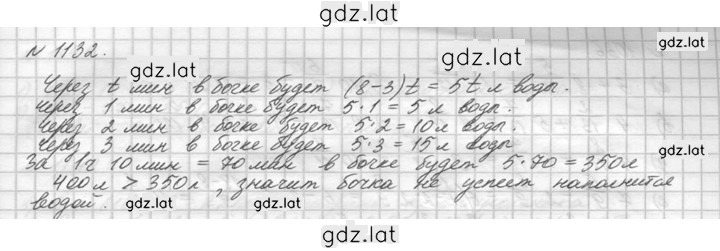 gdz.lat
gdz.lat
N 1132.
gdz.lat
gdz.lat
Через t мин в бочке будет (8-3)t = 5t л воды.
через 1 мин в бочке будет 5·1 = 5 л воды.
Через 2 мин в бочке будет 5·2 = 10 л воды.
Через 3 мин в бочке будет 5·3 = 15 л воды
gdz.lat
gdz.lat
За 1ч 10 мин = 70 мин в бочке будет 5·70 = 350л
400л > 350л, значит бочка не успеет наполнится
водой.
gdz.lat
gdz.lat
gdz.lat